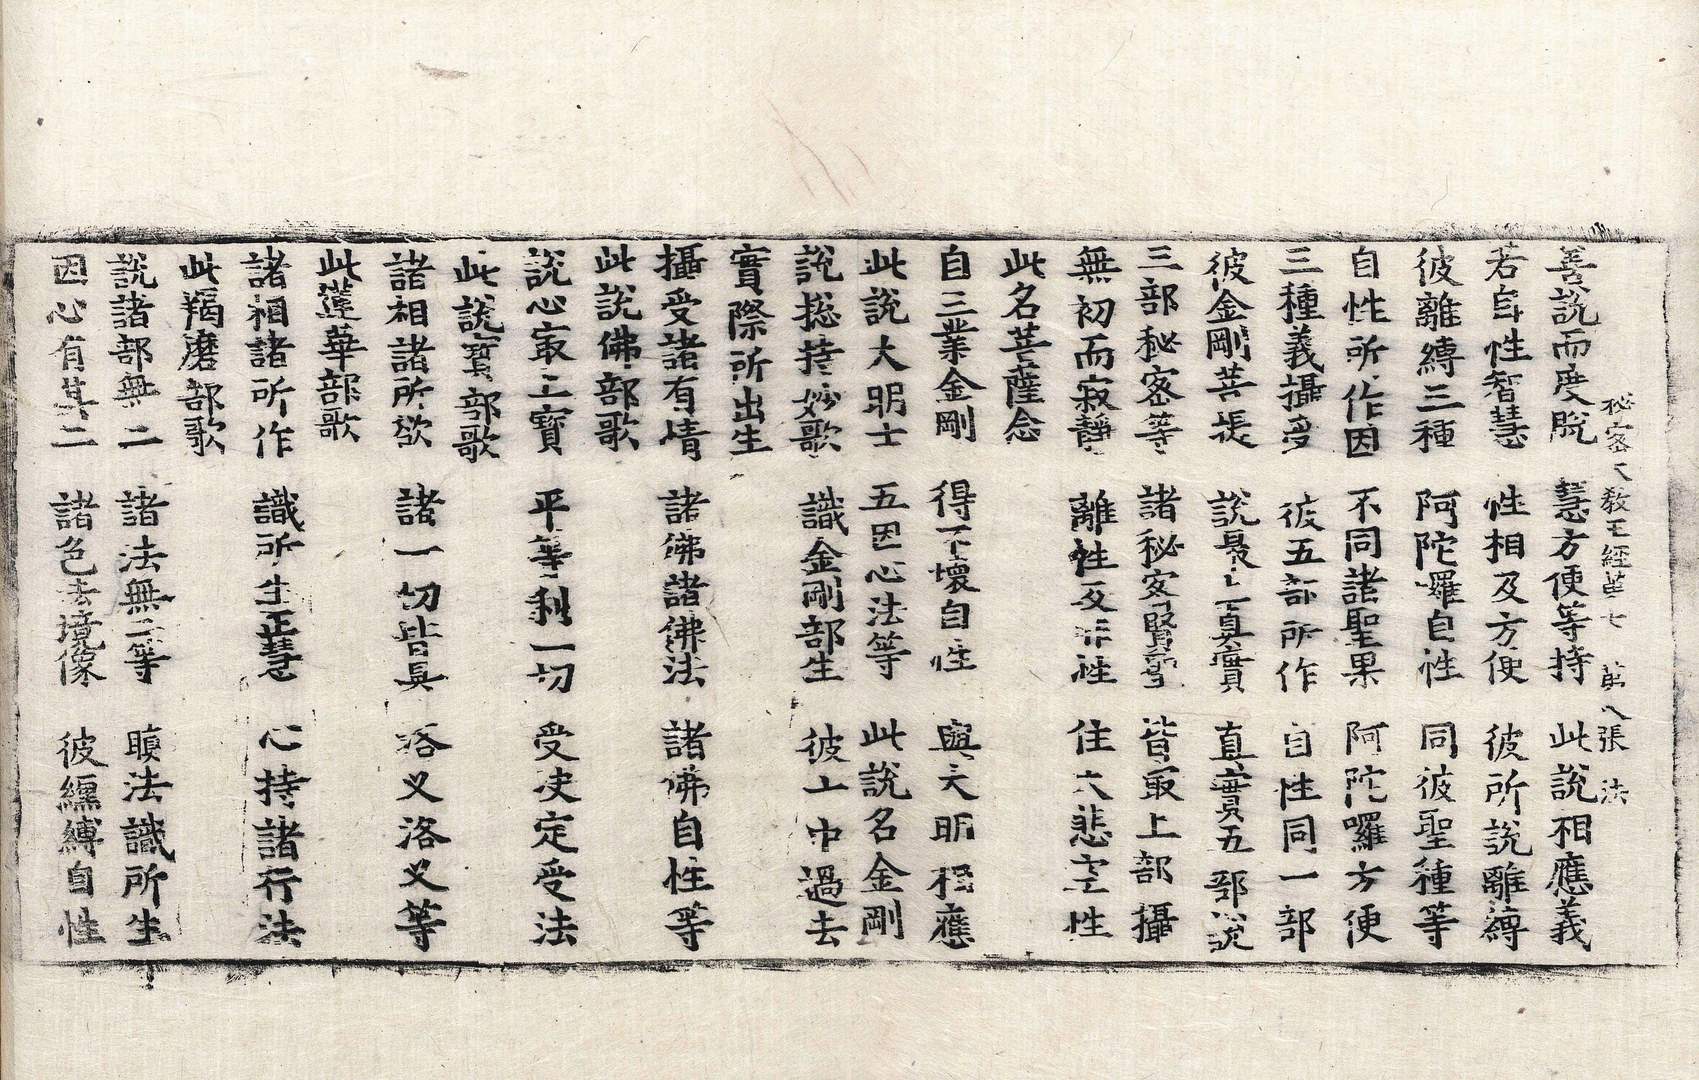 秘密大教王經第七　第八張　法
善說而度脫　慧方便等持　此說相應義
若自性智慧　性相及方便　彼所說離縛
彼離縛三種　阿陀囉自性　同彼聖種等
自性所作因　不同諸聖果　阿陀囉方便
三種義攝多　彼五部所作　自性同一部
彼金剛菩提　說最上真實　真實五部說
三部秘密等　諸秘密賢聖　皆最上部攝
無初而寂靜　離性及非性　住大悲空性
此名菩薩念
自三業金剛　得不壞自性　與大明相應
此說大明士　五因心法等　此說名金剛
說揔持妙歌　識金剛部生　彼上中過去
實際所出生
攝受諸有情　諸佛諸佛法　諸佛自性等
此說佛部歌
說心最上寶　平等利一切　受決定受法
此說寶部歌
諸相諸所欲　諸一切皆具　洛义洛义等
此蓮華部歌
諸相諸所作　識所生正慧　心持諸行法
此羯磨部歌
說諸部無二　諸法無二等　瞋法識所生
因心有其二　諸色去境像　彼纏縛自性